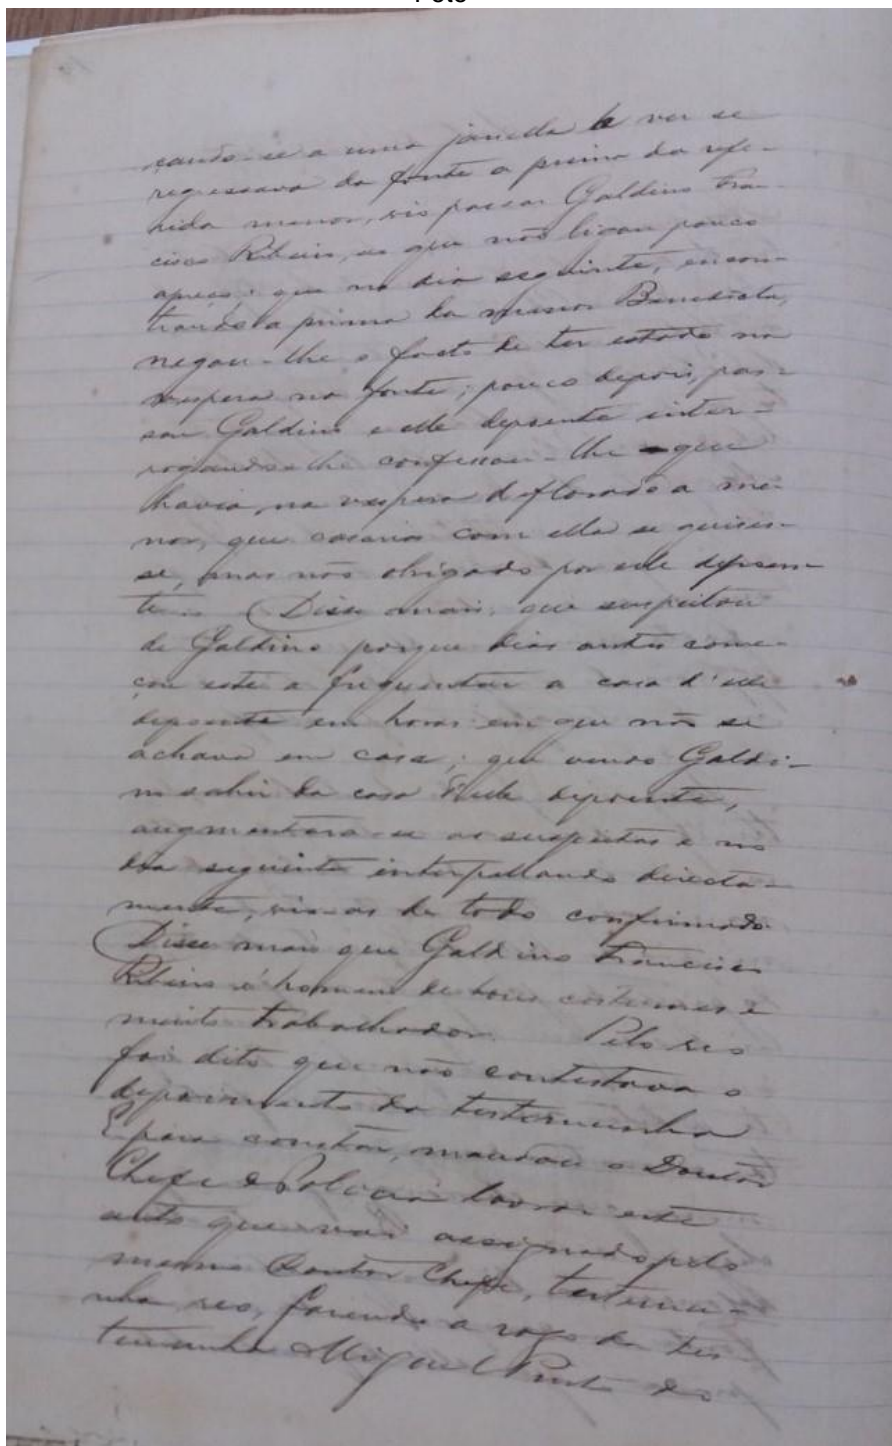 çando-se a uma janella a ver se
regressava da fonte a prima da refe-
rida menor, vio passar Galdino Fran-
cisco Ribeiro, ao que não ligou pouco
apreço; que no dia seguinte, encon-
trando a prima da menor Benedicta,
negou-lhe o facto de ter estado na
vespera na fonte; pouco depois, pas-
sou Galdino e elle depoente inter-
rogando-lhe confessou-lhe que
havia, na vespera deflorado a me-
nor, que casaria com ella se quises-
se, mas não obrigado por elle depoen-
te. Disse mais, que suspeitou
de Galdino porque dias antes come-
çou este a frequentar a casa d'elle
depoente em horas em que não se
achava em casa; que vendo Galdi-
no sahir da casa d'elle depoente,
augmentara-se as suspeitas e no
dia seguinte interpellando directa-
mente, vio-as de todo confirmado
Disse mais que Galdino Francisco
Ribeiro é homem de bons costumes e
muito trabalhador. Pelo reo
foi dito que não contestava o
depoimento da testemunha
E para constar, mandou o Doutor
Chefe de Policia lavrar este
auto que vai assignado pelo
mesmo Doutor Chefe, testemu-
nha reo, fazendo a rogo da tes-
temunha Miguel Pinto do